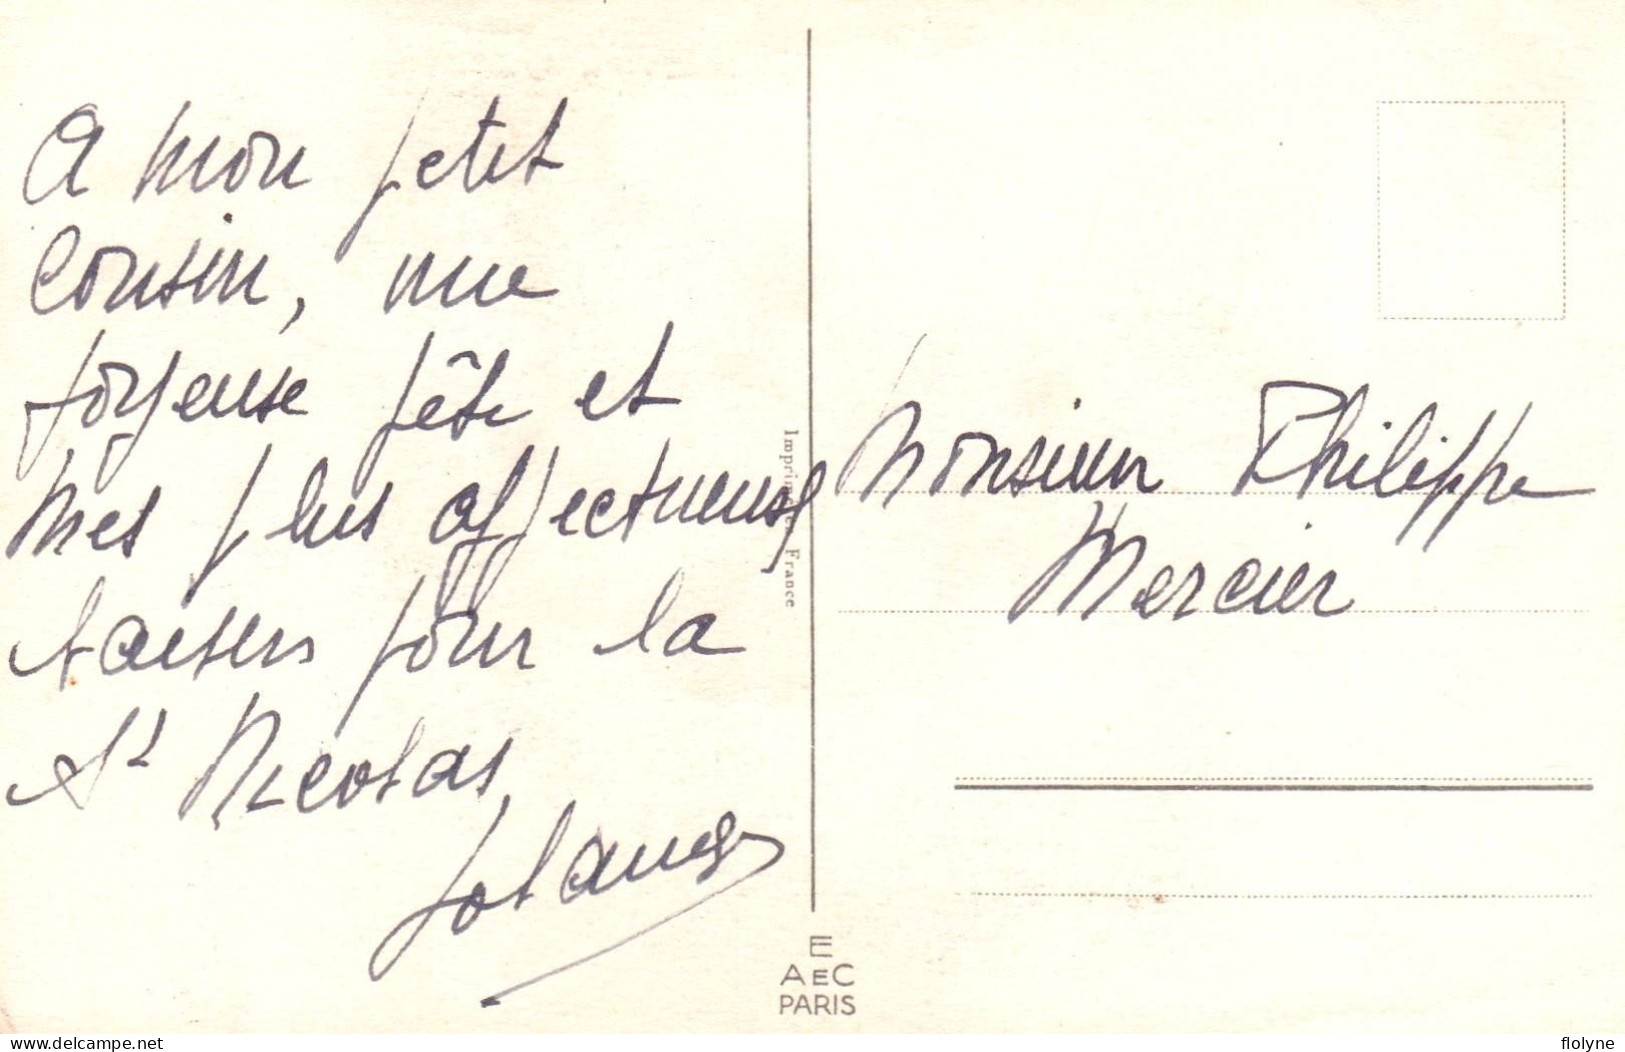 A mon petit
Cousin, une
joyeuse fête et
mes plus affectueux
baisers pour la
St Nicolas
Monsieur Philippe
Mercier
Imprimé en France
E
AEC
PARIS
https://www.delcampe.net
flolyne